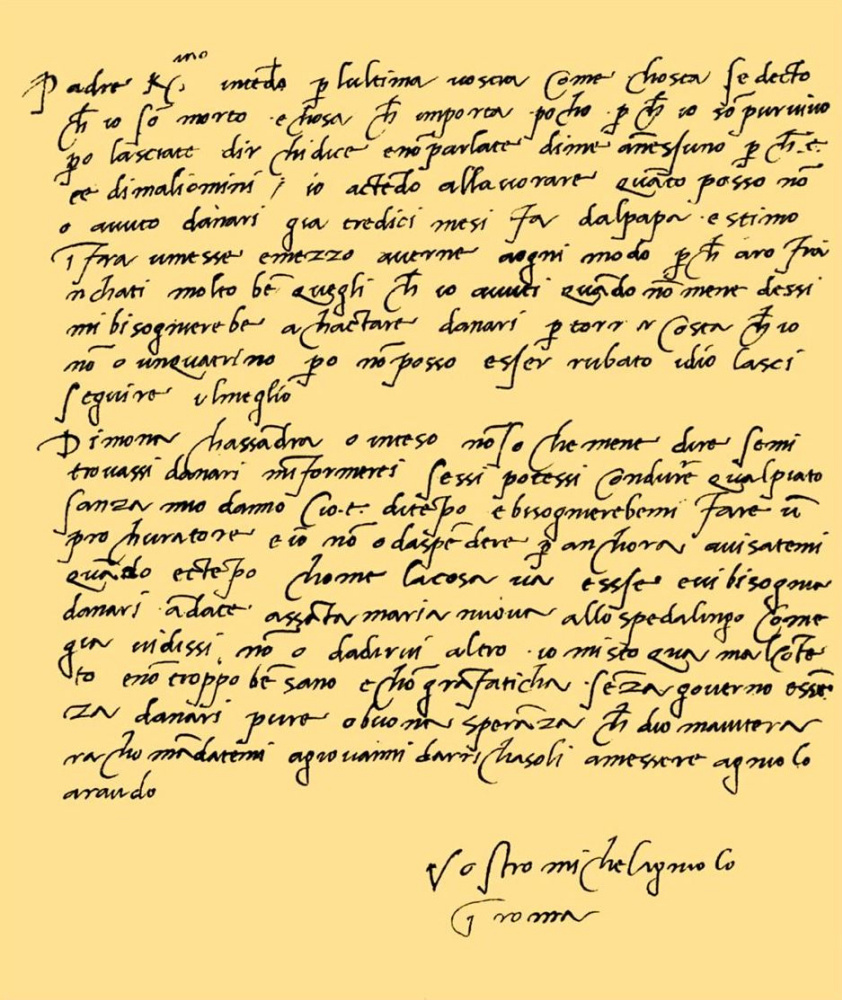 Padre K͞s.mo intẽdo p̱ lultima vostra Come chosta se decto
ch̄ io sõ morto · e chosa ch̄ importa pocho · p̱ ch̄ io sõ pur vivo
p̱o lasciate dir chi dice e nõ parlate dime anessuno p̱ ch̄.e.
ce dimaliomini / io actẽdo allavorare quãto posso nõ
o avuto danari gia tredici mesi fa dalpapa · e stimo
ĩfra umese emezzo averne aogni modo p̱ ch̄ aro fra
nchati molto bẽ quegli ch̄ io avuti quãdo nõ mene dessi
mi bisogniereb e achactare danari p̱ torr Costa ch̄ io
nõ o unquatrino p̱o nõ posso esser rubato idio lasci
seguire ilmeglio
Dimona chassãdra o inteso nõ so che mene dire semi
trovassi danari mĩformerei sessi potessi Condure qua lpiato
sanza mio danno Cio.e. ditẽpo e bisognierebemi fare ũ
prochuratore e io nõ o daspẽdere p̱ anchora avisatemi
quãdo ectẽpo chome lacosa va essse evi bisognia
danari ãdate assãta maria nuova allo spedalingo Come
gia vidissi nõ o dadirvi altro · io misto qua malCõtẽ
to enõ troppo bẽ sano e chõ grã faticha · sẽza governo e ssẽ
za danari pure o buona sperãza ch̄ dio maiutera
racho mãdatemi agiovanni darrichasoli amessere agniolo
araudo
Vostro michelagniolo
ĩ roma